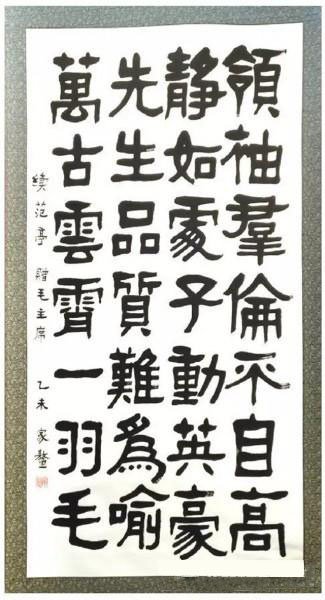 領袖羣倫不自高
靜如處子動英豪
先生品質難爲喻
萬古雲霄一羽毛
續范亭贈毛主席 乙未 家